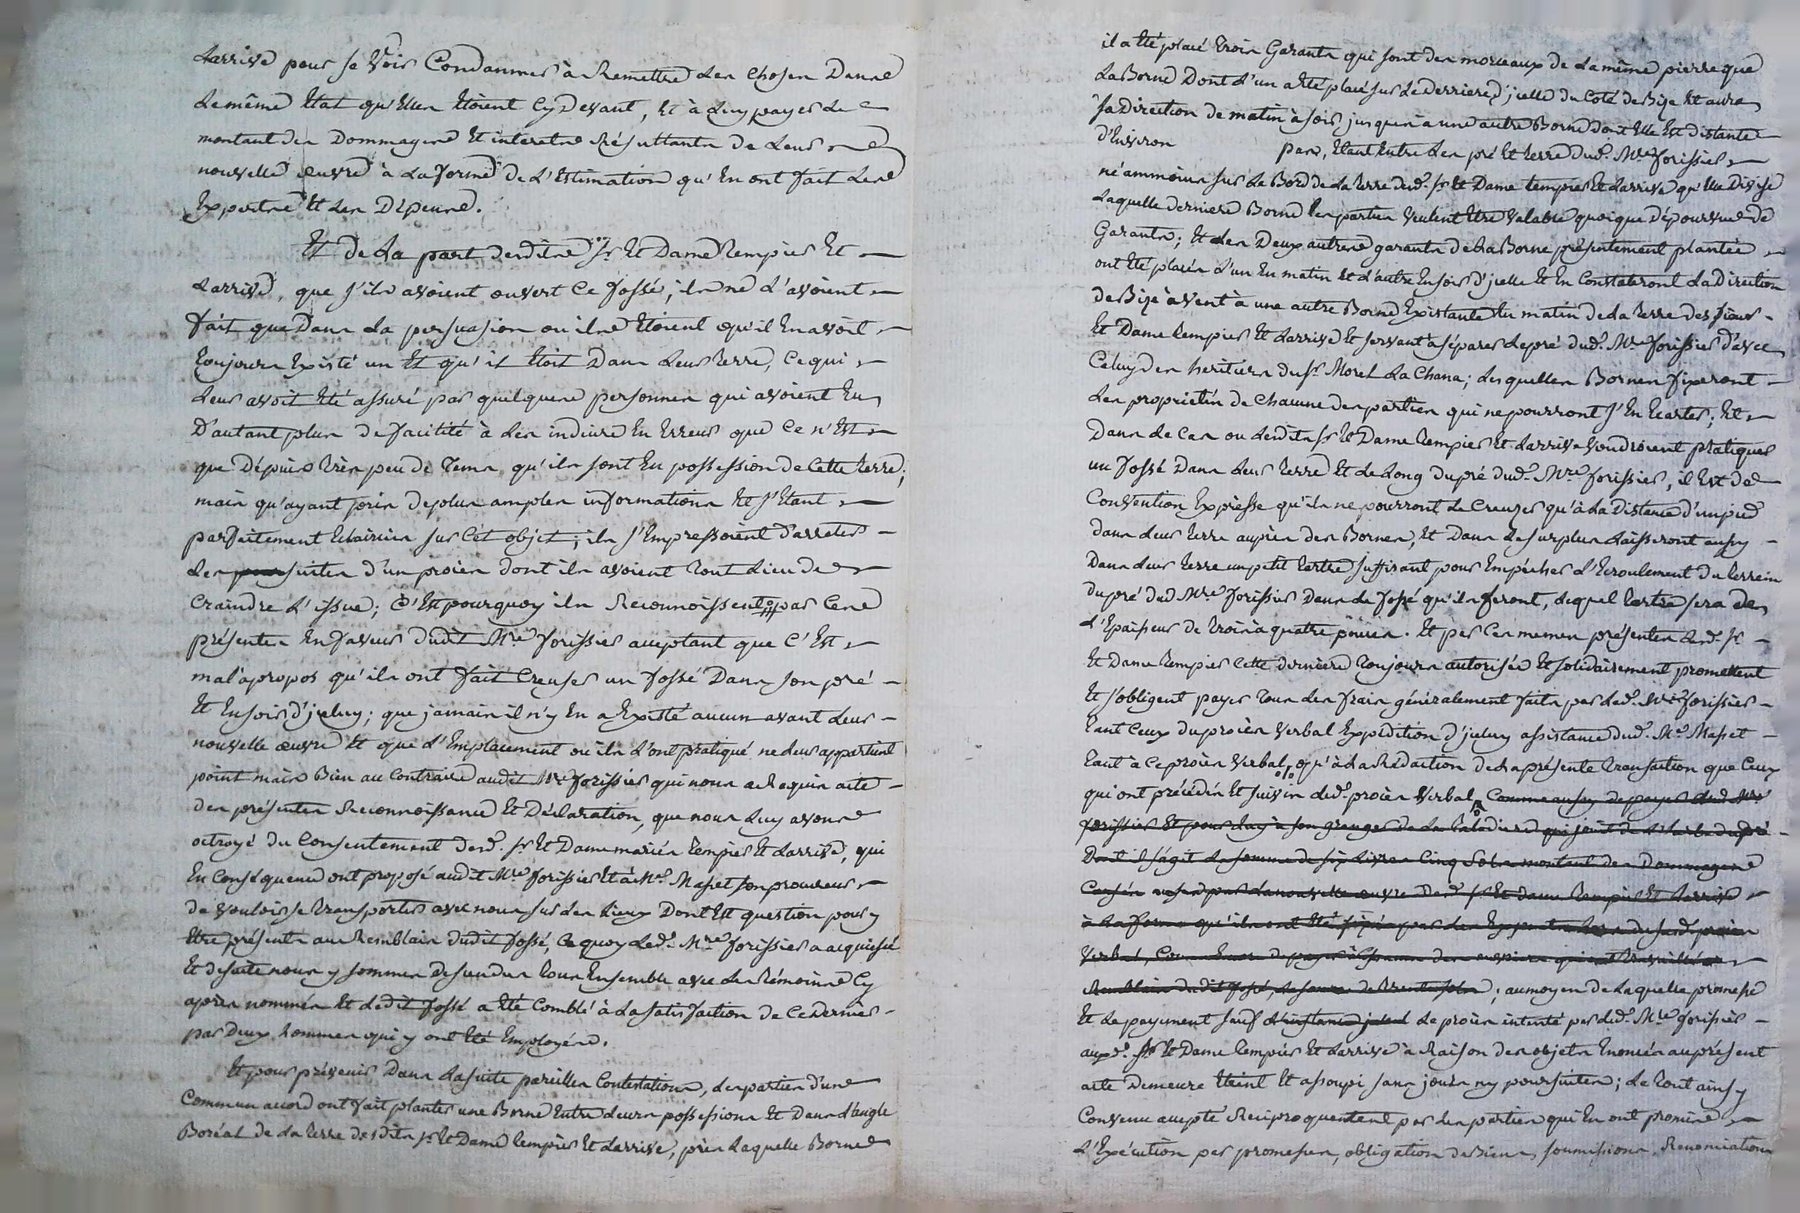 Larrive pour se Voir Condanner à Remettre Les Choses Dans
Le même Etat qu'Elles Etoient Cy Devant, Et à Luy payer Le
montant des Dommages Et interets Résultants de Leur
nouvelle œuvre à La forme de L'Estimation qu'En ont fait Les
Experts Et Les Dépens.
Et de La part desdits Sr Et Dame Tempier Et
Larrive, que s'ils avoient ouvert Ce fossé, ils ne L'avoient
fait que Dans La persuasion ou ils Etoient qu'il En avoit
Toujours Existé un Et qu'il Etoit Dans Leur Terre, Ce qui
Leur avoit Eté assuré par quelques personnes qui avoient Eu
D'autant plus de facilité à Les induire En Erreur que Ce n'Est
que Dépuis Très peu de Tems qu'ils sont En possession de Cette Terre;
mais qu'ayant pris de plus amples informations Et s'Etant
parfaitement Eclaircies sur Cet objet; ils s'Empressoient D'arreter
Les poursuites d'un procès dont ils avoient Tout Lieu de
Craindre L'issue; C'Est pourquoy ils Reconnoissent par Ces
présentes En faveur dudit Mre forissier acceptant que C'Est
mal àpropos qu'ils ont fait Creuser un fossé Dans son pré
Et En soir d'jceluy; que jamais il n'y En a Existé aucun avant Leur
nouvelle œuvre Et que L'Emplacement ou ils L'ont pratiqué ne Leur appartient
point mais Bien au Contraire audit Mre forissier qui nous a Requis acte
des présentes Reconnoissance Et Déclaration, que nous Luy avons
octroyé du Consentement desd. Sr Et Dame mariés Tempier Et Larrive, qui
En Conséquence ont proposé audit Mre forissier Et à Me. Masset son procureur
de vouloir se Transporter avec nous sur Les Lieux Dont Est question pour y
Etre présents au Remblais dudit fossé, Ce quoy Led. Mre forissier a acquiescé
Et de suite nous y sommes descendus Tous Ensemble avec Les Témoins Cy
après nommés Et Ledit fossé a Eté Comblé à La satisfaction de Ce Dernier
par Deux hommes qui y ont Eté Employés.
Et pour prévenir Dans La suite pareilles Contestations, Les parties D'un
Commun accord ont fait planter une Borne Entre Leurs possessions Et Dans L'angle
Boréal de La Terre desdits Sr Et Dame Tempier Et Larrive, près Laquelle Borne
il a Eté placé Trois Garants qui sont des morceaux de La même pierre que
La Borne Dont L'un a Eté placé sur Le Derriere d'jcelle du Coté de Bize Et aura
sa Direction de matin à soir jusques à une autre Borne dont Elle Est distante
d'Environ pas, Etant Entre Les pré Et Terre dud. Mre forissier
néammoins sur Le Bord de La Terre desd. Sr Et Dame Tempier Et Larrive qu'Elle Divise
Laquelle derniere Borne Les parties Veulent Etre Valable quoique dépourvue de
Garants; Et Les Deux autres garants de La Borne présentement plantée
ont Eté placés L'un En matin Et L'autre En soir d'jcelle Et En Constateront La Direction
de Bize à Vent à une autre Borne Existante En matin de La Terre des sieur
Et Dame Tempier Et Larrive Et servant à séparer Le pré dud. Mre forissier d'avec
Celuy des heritiers du Sr Morel La Chana; Lesquelles Bornes fixeront
Les proprietés de Chacune des parties qui ne pourront s'En Ecarter; Et
Dans Le Cas ou Lesdits Sr Et Dame Tempier Et Larrive Voudroient pratiquer
un fossé Dans Leur Terre Et Le Long du pré dud. Mre forissier, il Est de
Convention Expresse qu'ils ne pourront Le Creuser qu'à La Distance d'un pied
dans Leur Terre auprès des Bornes, Et Dans Le surplus Laisseront aussy
Dans Leur Terre un petit Tertre suffisant pour Empécher L'Ecroulement du Terrein
du pré dud Mre forissier Dans Le fossé qu'ils feront, Lequel Tertre sera de
L'Epaisseur de Trois à quatre pouces. Et par Ces memes présentes Lesd. Sr
Et Dame Tempier Cette derniere Toujours autorisée Et solidairement promettent
Et s'obligent payer Tous Les frais généralement faits par Led. Mre forissier
Tant Ceux du procès Verbal Expédition d'jceluy assistance dud. Me. Masset
Tant à Ce procès Verbal, qu'à La Rédaction de La présente Transaction que Ceux
qui ont précédés Et suivis Led. procès Verbal, Comme aussy de payer aud. Mre
forissier Et pour Luy à son granger de La Paladiere qui jouit de L'herbe du pré
Dont il s'agit La somme de six Livres Cinq Sols montant des Dommages
Causés par La nouvelle œuvre desd. Sr Et Dame Tempier Et Larrive
à La forme qu'ils ont Eté fixés par Les Experts Lors du susd. procès
Verbal, Comme Encor de payer à Chacun des ouvriers qui ont Travaillé au
Remblais dudit fossé, La somme de Trente sols; au moyen de Laquelle promesse
Et Le payement sauf Le procès intenté par Led. Mre forissier
auxd. Sr Et Dame Tempier Et Larrive à Raison des objets Enoncés au présent
acte Demeure Eteint Et assoupi sans jouir ny poursuites; Le Tout ainsy
Convenu accepté Réciproquement par Les parties qui En ont promis
L'Exécution par promesses, obligation de Biens, soumissions, Renonciations